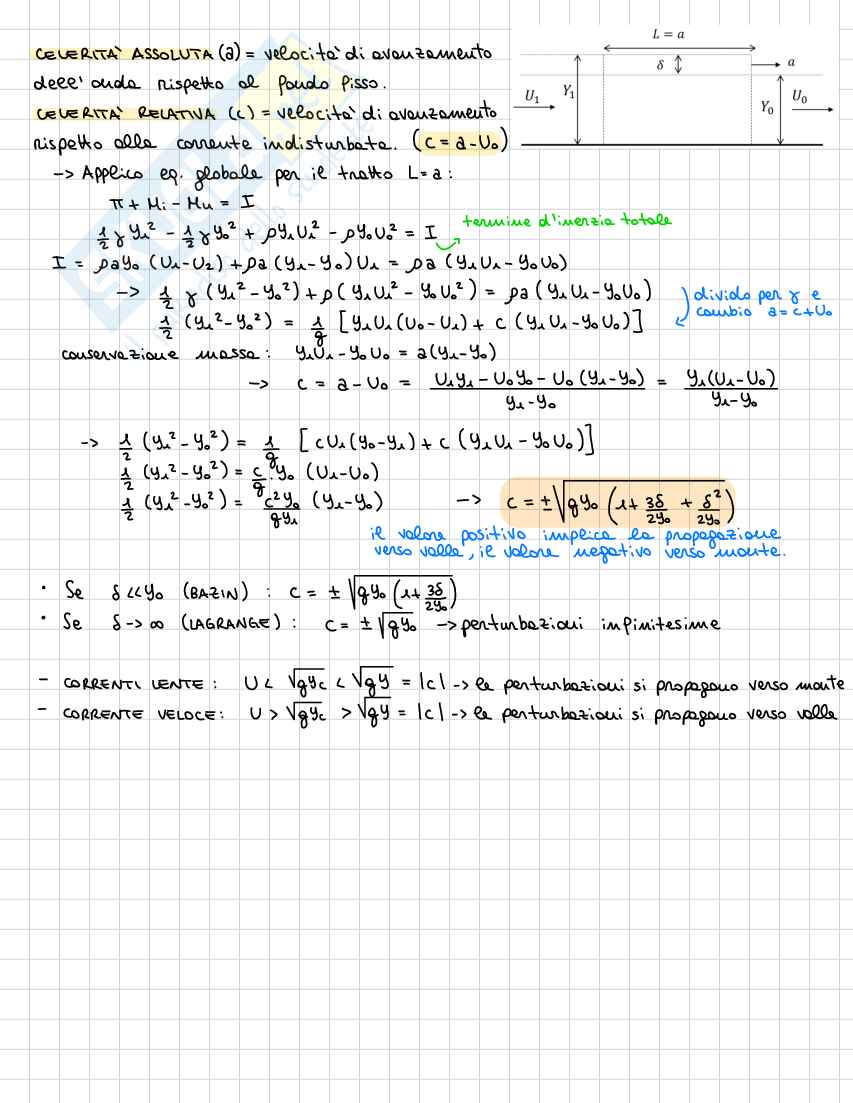 CELERITA' ASSOLUTA (a) = velocita' di avanzamento
dell'onda rispetto al fondo fisso.
CELERITA' RELATIVA (c) = velocita' di avanzamento
rispetto alla corrente indisturbata. (c = a - U₀)
L = a
δ
a
U₁
Y₁
Y₀
U₀
-> Applico eq. globale per il tratto L = a :
π + Mi - Mu = I
1/2 γ y₁² - 1/2 γ y₀² + ρy₁U₁² - ρy₀U₀² = I
termine d'inerzia totale
I = ρay₀ (U₁ - U₂) + ρa (y₁ - y₀) U₁ = ρa (y₁U₁ - y₀U₀)
-> 1/2 γ (y₁² - y₀²) + ρ( y₁U₁² - y₀U₀²) = ρa ( y₁U₁ - y₀U₀)
divido per γ e
cambio a = c + U₀
1/2 (y₁² - y₀²) = 1/g [y₁U₁ (U₀ - U₁) + c (y₁U₁ - y₀U₀)]
conservazione massa : y₁U₁ - y₀U₀ = a(y₁ - y₀)
-> c = a - U₀ = (U₁y₁ - U₀y₀ - U₀ (y₁ - y₀))/(y₁ - y₀) = y₁(U₁ - U₀)/(y₁ - y₀)
-> 1/2 (y₁² - y₀²) = 1/g [cU₁ (y₀ - y₁) + c (y₁U₁ - y₀U₀)]
1/2 (y₁² - y₀²) = c/g · y₀ (U₁ - U₀)
1/2 (y₁² - y₀²) = c²y₀/gy₁ (y₁ - y₀) -> c = ±√(gy₀ (1 + 3δ/2y₀ + δ²/2y₀))
il valore positivo implica la propagazione
verso valle, il valore negativo verso monte.
• Se δ << y₀ (BAZIN) : c = ± √(gy₀ (1 + 3δ/2y₀))
• Se δ -> ∞ (LAGRANGE) : c = ± √(gy₀) -> perturbazioni infinitesime
- CORRENTI LENTE : U < √(gyc) < √(gy) = |c| -> le perturbazioni si propagano verso monte
- CORRENTE VELOCE : U > √(gyc) > √(gy) = |c| -> le perturbazioni si propagano verso valle